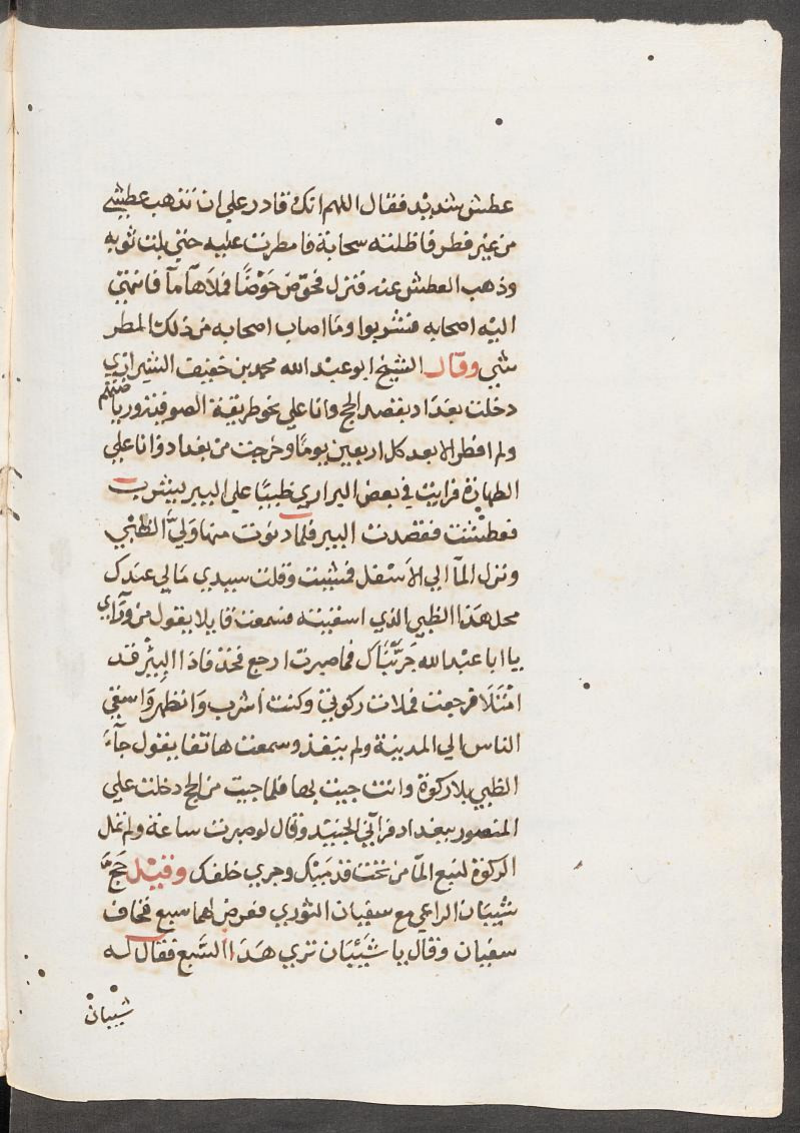 عطش شديد فقال اللهم انك قادر علي ان تذهب عطشي
من غير فطر فاظلته سحابة فامطرت عليه حتي بلت ثوبه
وذهب العطش عنه فنزل فحوض حَوْضًا فملاها مآ فانتهي
اليه اصحابه فشربوا وما اصاب اصحابه من ذلك المطر
شي وقال الشيخ ابو عبد الله محمد بن خفيف الشيرازي
دخلت بغداد بقصد الحج وانا علي نحو طريقة الصوفية ورياضتهم
ولم افطر الا بعد كل اربعين يومًا وخرجت من بغداد وانا علي
الطهارة فرايت في بعض البراري ظبيًا علي البير يشرب
فعطشت فقصدت البير فلما دنوت منها وليَّ الظبي
ونزل المآ الي الاسفل فمشيت وقلت سيدي مالي عندك
محل هذا الظبي الذي اسقيته فسمعت قايلا يقول من ورآي
يا ابا عبد الله جَرَّبْنَاك فما صبرت ارجع فخذ فاذا البِئر قد
امْتَلَا فرجعت فملات ركوتي وكنت أشرب وَاتطهر وَاسقي
الناس الي المدينة ولم ينفذ وسمعت هاتفا يقول جآءَ
الظبي بلا ركوة وانت جيت بها فلما جيت من الحج دخلت علي
المنصور ببغداد فرآني الجنيد وقال لو صبرت ساعة ولم تمل
الركوة لنبع المآ من تحت قدميك وجري خلفك وقيل حَجَّ
شيبَان الراعي مع سفيان الثوري فعرض لهما سبع فخاف
سفيان وقال يا شَيْبَان تري هَذا السَّبع فقال له
شيبان